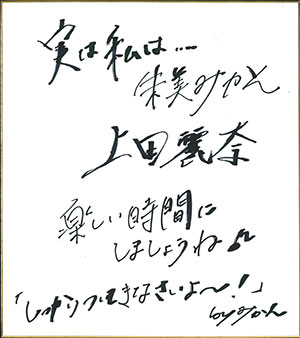 実は私は…
朱美みかん
上田麗奈
楽しい時間に
しましょうね♪
「しっかりついてきなさいよ～！」
byみかん